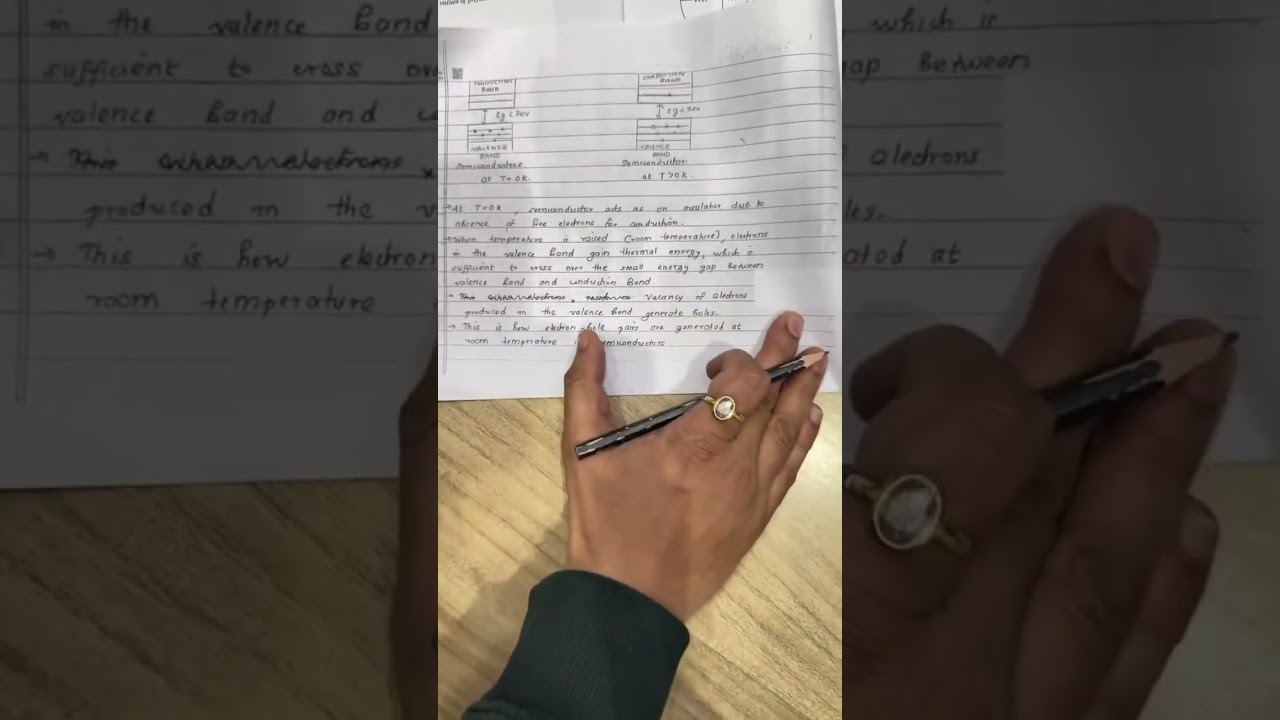 values of phys
CONDUCTION CONDUCTION
BAND BAND
Eg < 3eV Eg < 3eV
VALENCE VALENCE
BAND BAND
Semiconductors Semiconductor
at T = 0 k. at T > 0 k.
→ At T = 0 k, semiconductor acts as an insulator due to
absence of free electrons for conduction.
→ When temperature is raised (room temperature), electrons
in the valence band gain thermal energy, which is
sufficient to cross over the small energy gap between
valence band and conduction Band.
→ Vacancy of electrons
produced in the valence band generate holes.
→ This is how electron-hole pairs are generated at
room temperature semiconductors.